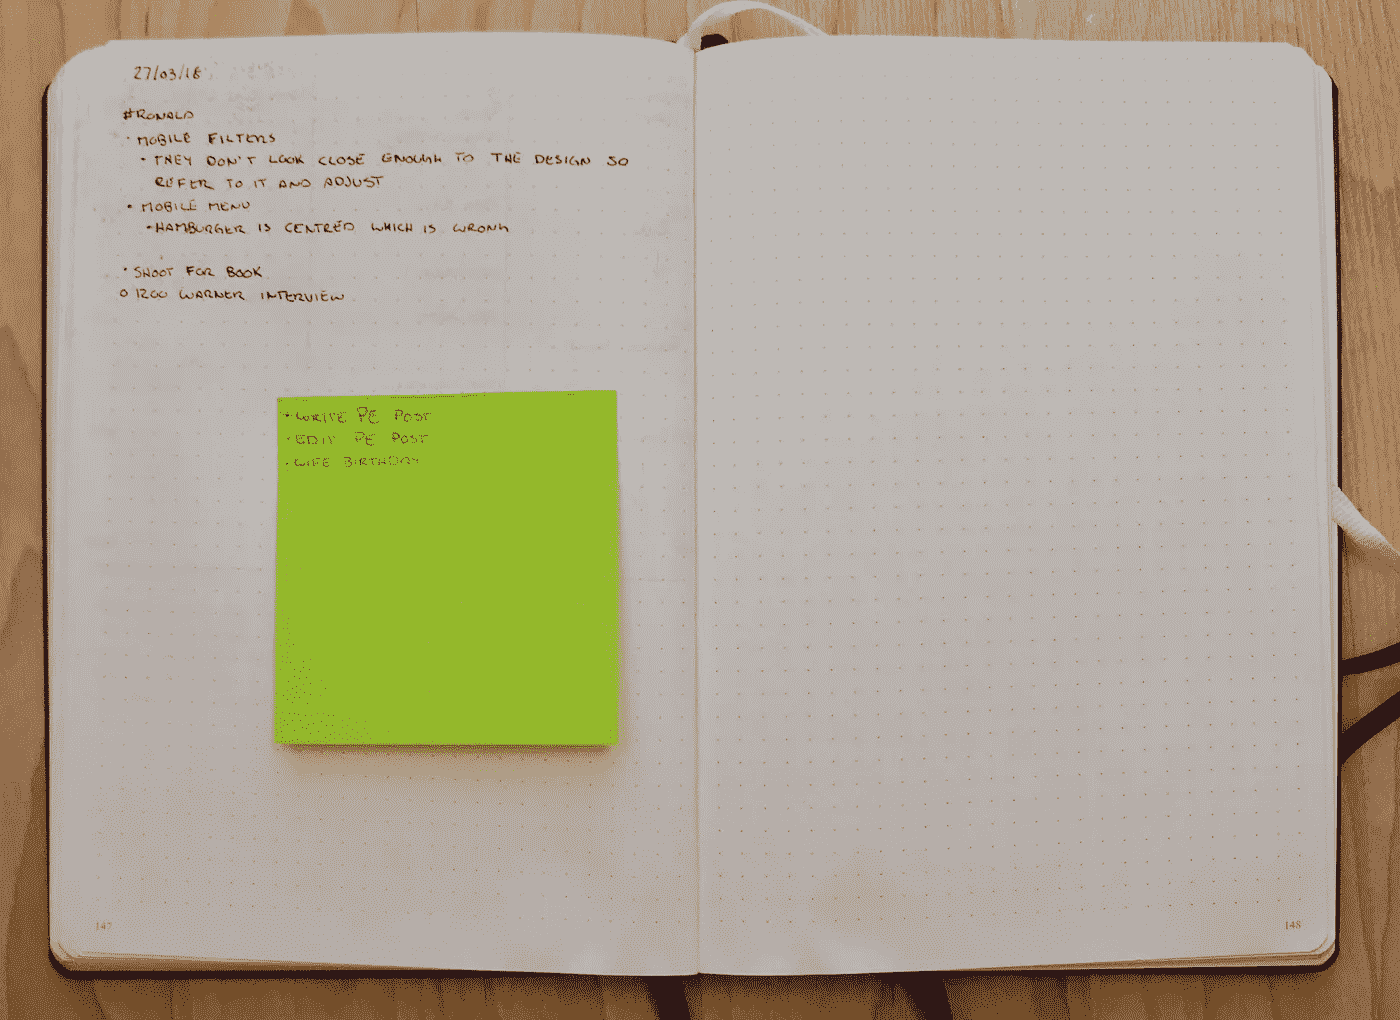 27/03/18
#RONALD
• MOBILE FILTERS
• THEY DON'T LOOK CLOSE ENOUGH TO THE DESIGN SO
REFER TO IT AND ADJUST
• MOBILE MENU
• HAMBURGER IS CENTRED WHICH IS WRONG
• SHOOT FOR BOOK
O 1200 WARNER INTERVIEW
• WRITE PE POST
• EDIT PE POST
• WIFE BIRTHDAY
147
148